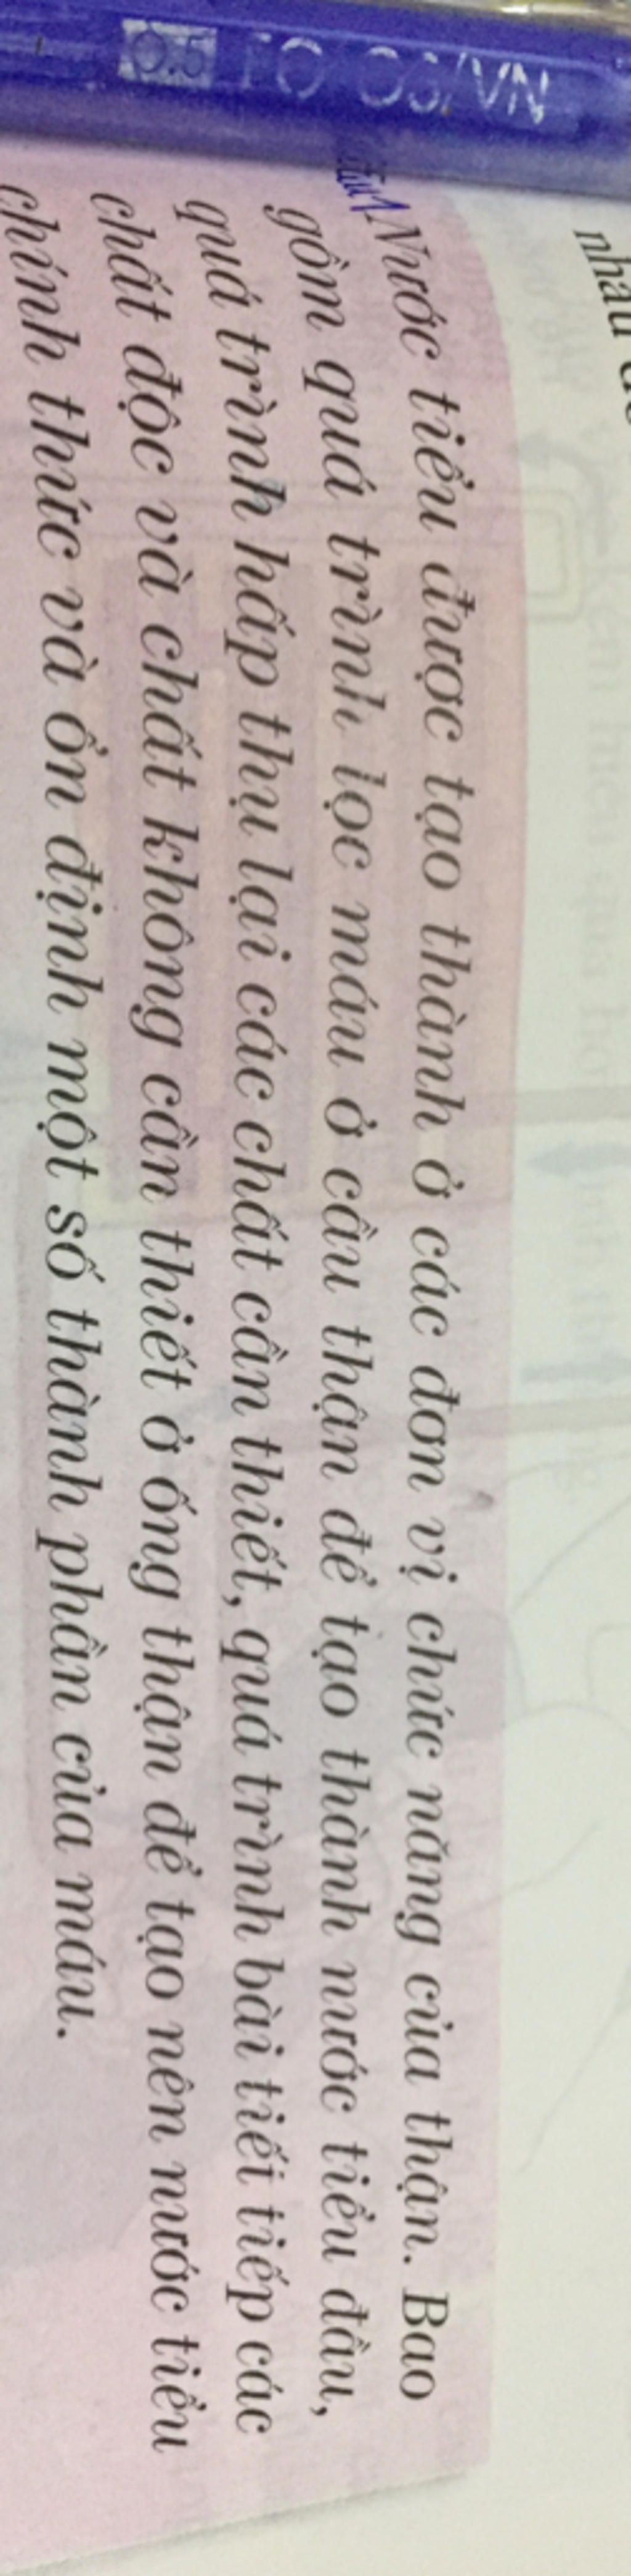 nhau
Nước tiểu được tạo thành ở các đơn vị chức năng của thận. Bao
gồm quá trình lọc máu ở cầu thận để tạo thành nước tiểu đầu,
quá trình hấp thụ lại các chất cần thiết, quá trình bài tiết tiếp các
chất độc và chất không cần thiết ở ống thận để tạo nên nước tiểu
chính thức và ổn định một số thành phần của máu.
0.5
/VN